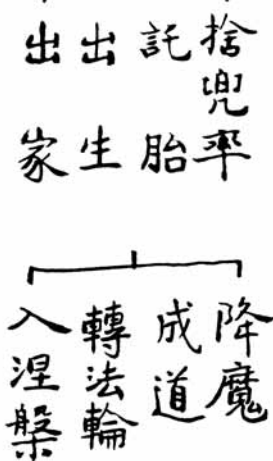 捨兜率
託胎
出生
出家
降魔
成道
轉法輪
入涅槃